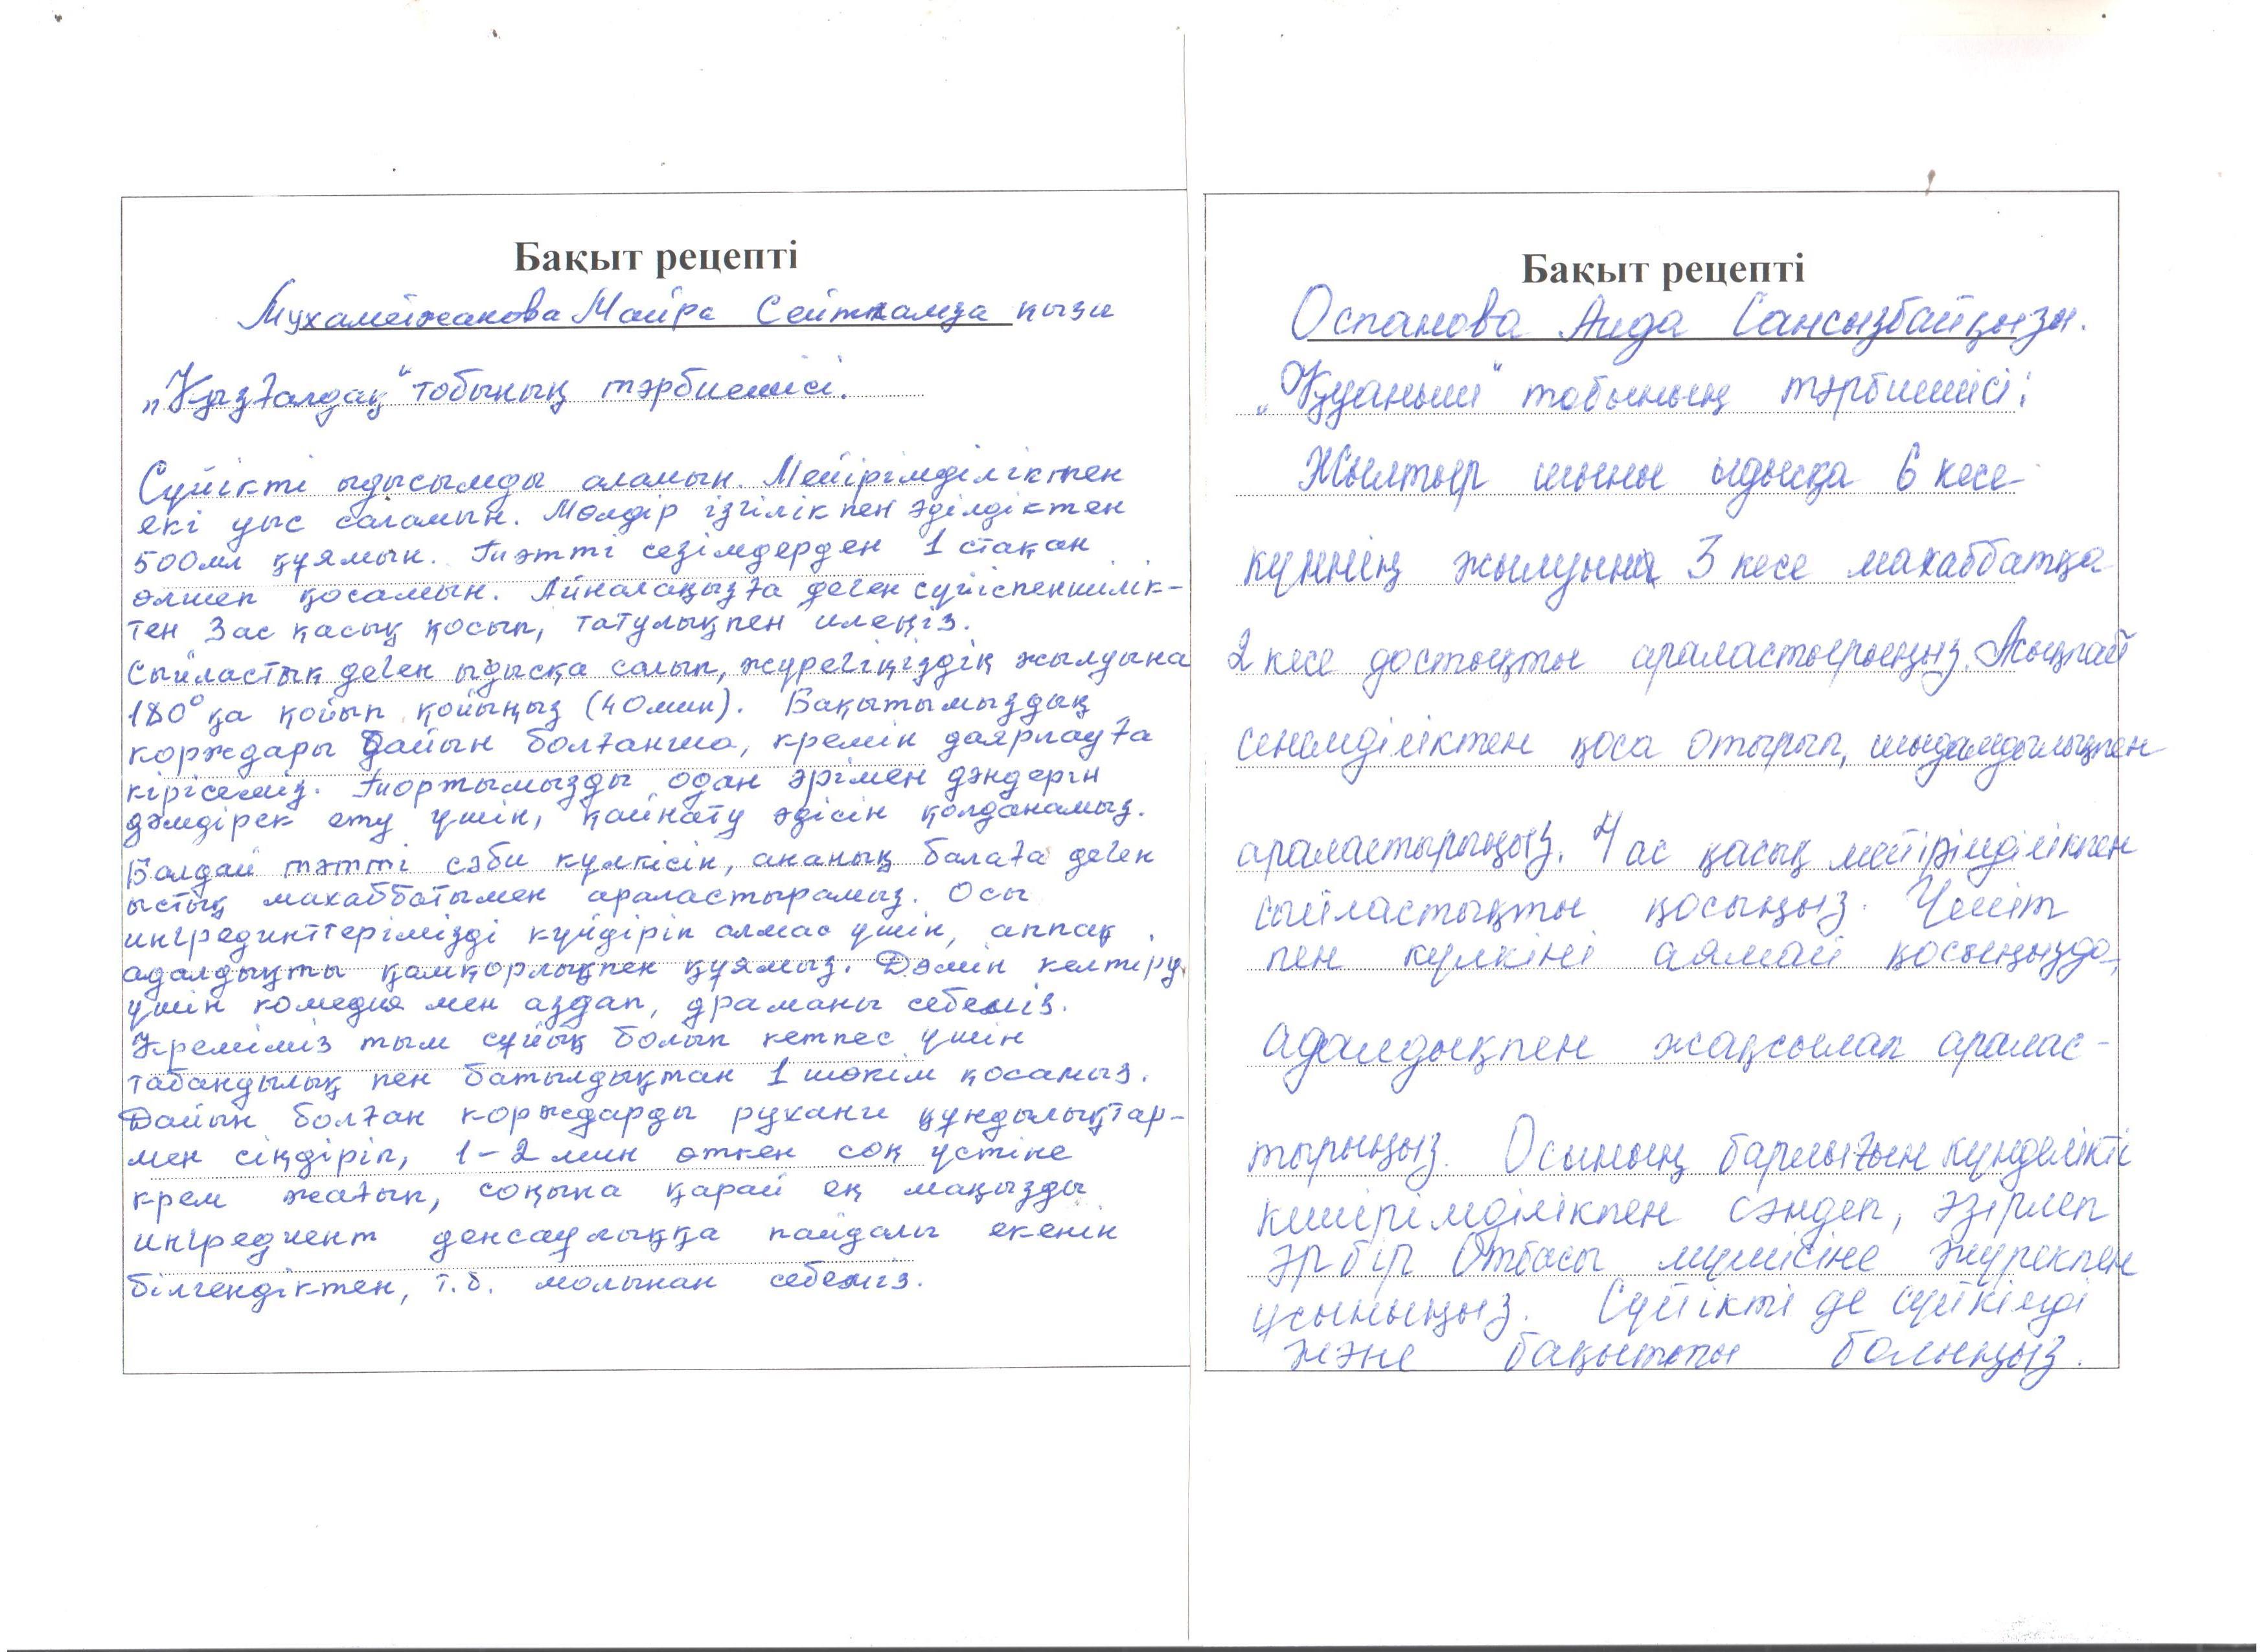 Бақыт рецепті
Мухамейжанова Майра Сейтхамза қызы
„Қызғалдақ" тобының тәрбиешісі.
Сүйікті ыдысымды аламын. Мейірімділіктен
екі уыс саламын. Мөлдір ізгілік пен әділдіктен
500мл құямын. Тәтті сезімдерден 1 стақан
өлшеп қосамын. Айналаңызға деген сүйіспеншілік-
тен 3 ас қасық қосып, татулықпен илеңіз.
Сыйластық деген ыдысқа салып, жүрегіңіздің жылуына
180° қа қойып қойыңыз (40мин). Бақытымыздың
корждары дайын болғанша, кремін даярлауға
кірісеміз. Тортымызды одан әрімен дәндерін
дәмдірек ету үшін, қайнату әдісін қолданамыз.
Балдай тәтті сәби күлкісін, ананың балаға деген
ыстық махаббатымен араластырамыз. Осы
ингрединттерімізді күйдіріп алмас үшін, аппақ
адалдықты қамқорлықпен құямыз. Дәмін келтіру
үшін комедия мен аздап, драманы себеміз.
Креміміз тым сұйық болып кетпес үшін
табандылық пен батылдықтан 1 шөкім қосамыз.
Дайын болған корждарды рухани құндылықтар-
мен сіңдіріп, 1-2 мин өткен соң үстіне
крем жағып, соңына қарай ең маңызды
ингредиент денсаулыққа пайдалы екенін
білгендіктен, т.б. молынан себеміз.
Бақыт рецепті
Оспанова Аида Сансызбайқызы.
„Қуаныш" тобының тәрбиешісі:
Жылтыр шыны ыдысқа 6 кесе
күннің жылуына 3 кесе махаббатқа
2 кесе достықты араластырыңыз. Асықпай
сенімділіктен қоса отырып, шыдамдылықпен
араластырыңыз. 4 ас қасық мейірімділікпен
сыйластықты қосыңыз. Үміт
пен күлкіні аямай қосыңызда,
адалдықпен жақсылап аралас-
тырыңыз. Осының барлығын күнделікті
кішірімділікпен сәндеп, әзірлеп
әрбір Отбасы мүшесіне жүрекпен
ұсыныңыз. Сүйікті де сүйкімді
және бақытты болыңыз.